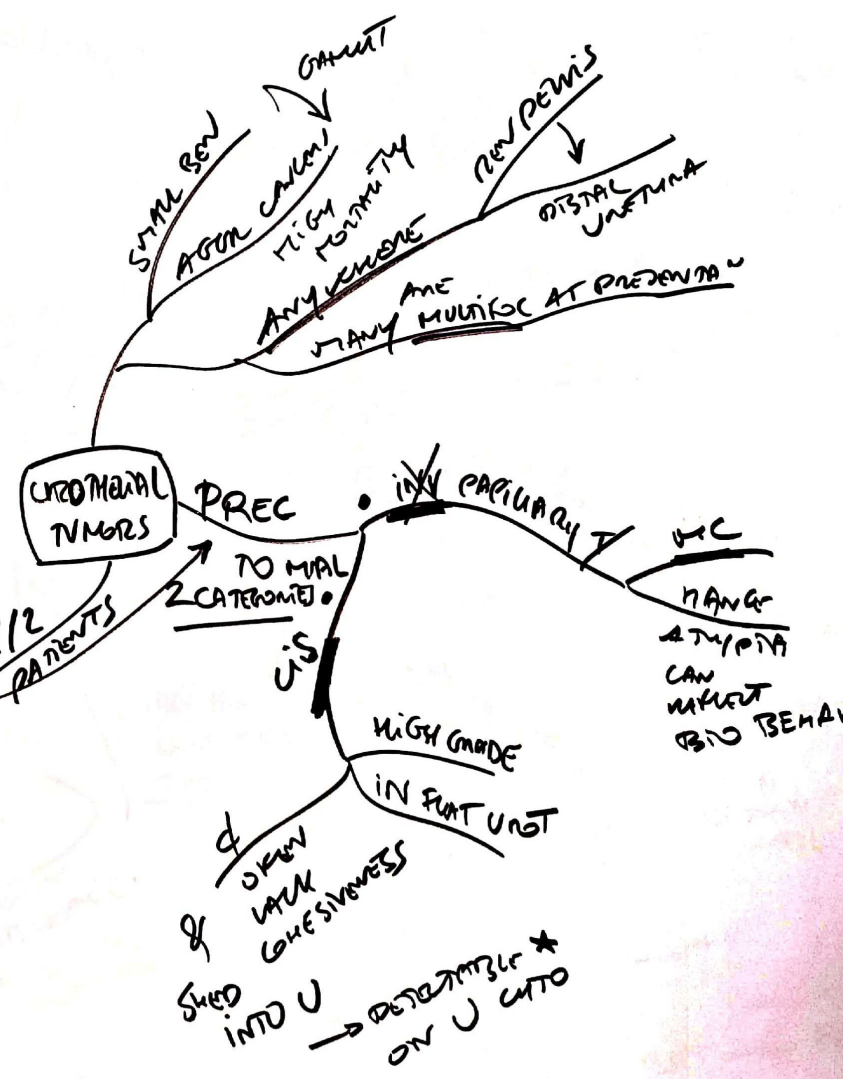 GAMUT
SMALL BEN
AGGR CANCERS
HIGH
MORTALITY
ANYWHERE
REN PELVIS
DISTAL
URETHRA
MANY ARE MULTIFOC AT PRESENTAN
UROTHELIAL
TUMORS
PREC
TO MAL
2 CATEGORIES
1/2
PATIENTS
INV PAPILLARY T
MC
RANGE
ATYPIA
CAN
REFLECT
BIO BEHAV
CIS
HIGH GRADE
IN FLAT UROT
¢
OFTEN
LACK
COHESIVENESS
&
SHED
INTO U
→ DETECTABLE ★
ON U CYTO